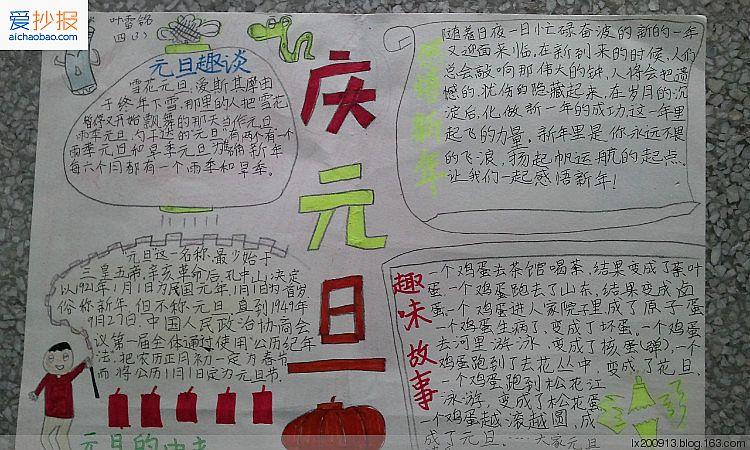 爱抄报
aichaobao.com
叶雪铭
四(3)
元旦趣谈
雪花元旦,爱斯基摩由
于终年下雪,那里的人把雪花
暂停又开始飘舞的那天当作元旦
雨季元旦,乌干达的"元旦"有两个有一个
雨季元旦和旱季元旦为确新年
每六个月都有一个雨季和旱季。
庆元旦
感悟新年
随着日夜一日忙碌奋波的新的一年
又迎面来临,在新到来的时候,人们
总会敲响那伟大的钟,人将会把遗
憾的,忧伤的隐藏起来,在岁月的沉
淀后,化做新一年的成功,这一年里
起飞的力量。新年里是你永远不畏
的飞浪,扬起帆运航的起点。
让我们一起感悟新年!
"元旦"这一名称,最少始于
三皇五帝,辛亥革命后,孔中山,决定
以1921年1月1日为民国元年,1月1日为首岁,
俗称新年,但不称元旦,直到1949年
9月27日,中国人民政治协商会
议第一届全体通过使用"公历纪年
法,把农历正月初一定为春节,
而将公历1月1日定为元旦节。
元旦的由来
趣味故事
一个鸡蛋去茶馆喝茶,结果变成了茶叶
蛋,一个鸡蛋跑去了山东,结果变成卤
蛋,一个鸡蛋进人家院子里,成了原子蛋
一个鸡蛋生病了,变成了坏蛋,一个鸡蛋
去河里游泳,变成了核蛋(弹),一个
鸡蛋跑到了去花丛中,变成了花旦,
一个鸡蛋跑到松花江
游泳,变成了松花蛋
一个鸡蛋越滚越圆,成
成了元旦,……大家元旦
lx200913.blog.163.com